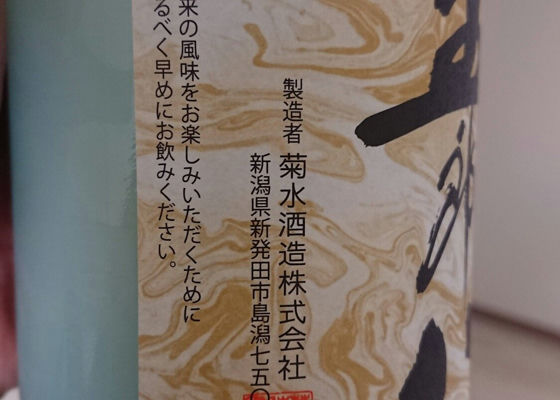 製造者 菊水酒造株式会社
新潟県新発田市島潟七五〇
来の風味をお楽しみいただくために
るべく早めにお飲みください。